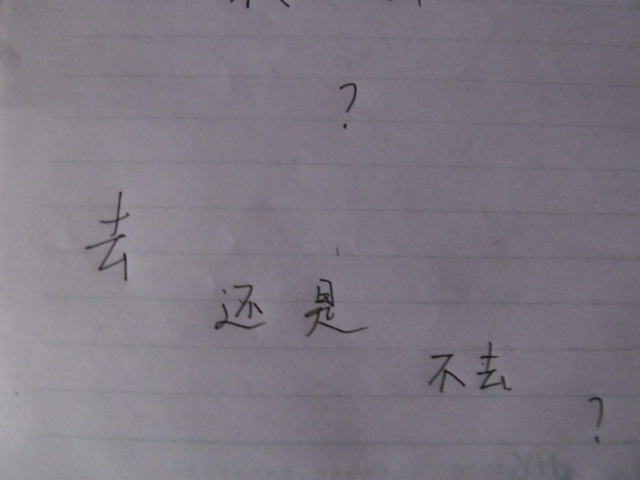 ?
去
还是
不去
?